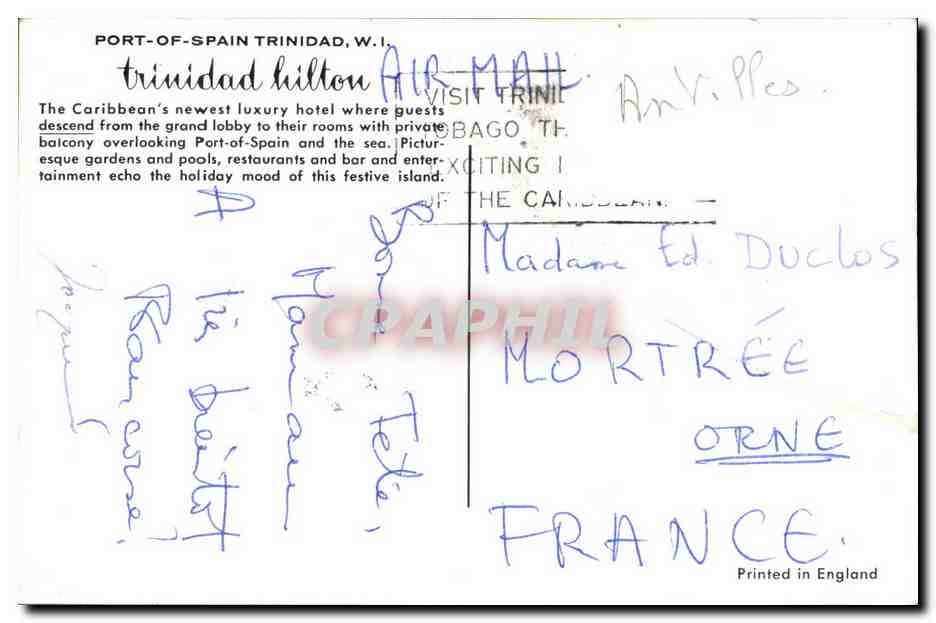 PORT-OF-SPAIN TRINIDAD, W.I.
trinidad hilton
The Caribbean's newest luxury hotel where guests
descend from the grand lobby to their rooms with private
balcony overlooking Port-of-Spain and the sea. Pictur-
esque gardens and pools, restaurants and bar and enter-
tainment echo the holiday mood of this festive island.
AIR MAIL.
VISIT TRINI
OBAGO TH
EXCITING I
OF THE CARIBBEAN.
Antilles.
Bonne Fête,
Maman
A très bientôt
Madame Ed. DUCLOS
MORTRÉE
ORNE
FRANCE.
CPAPHIL
Printed in England